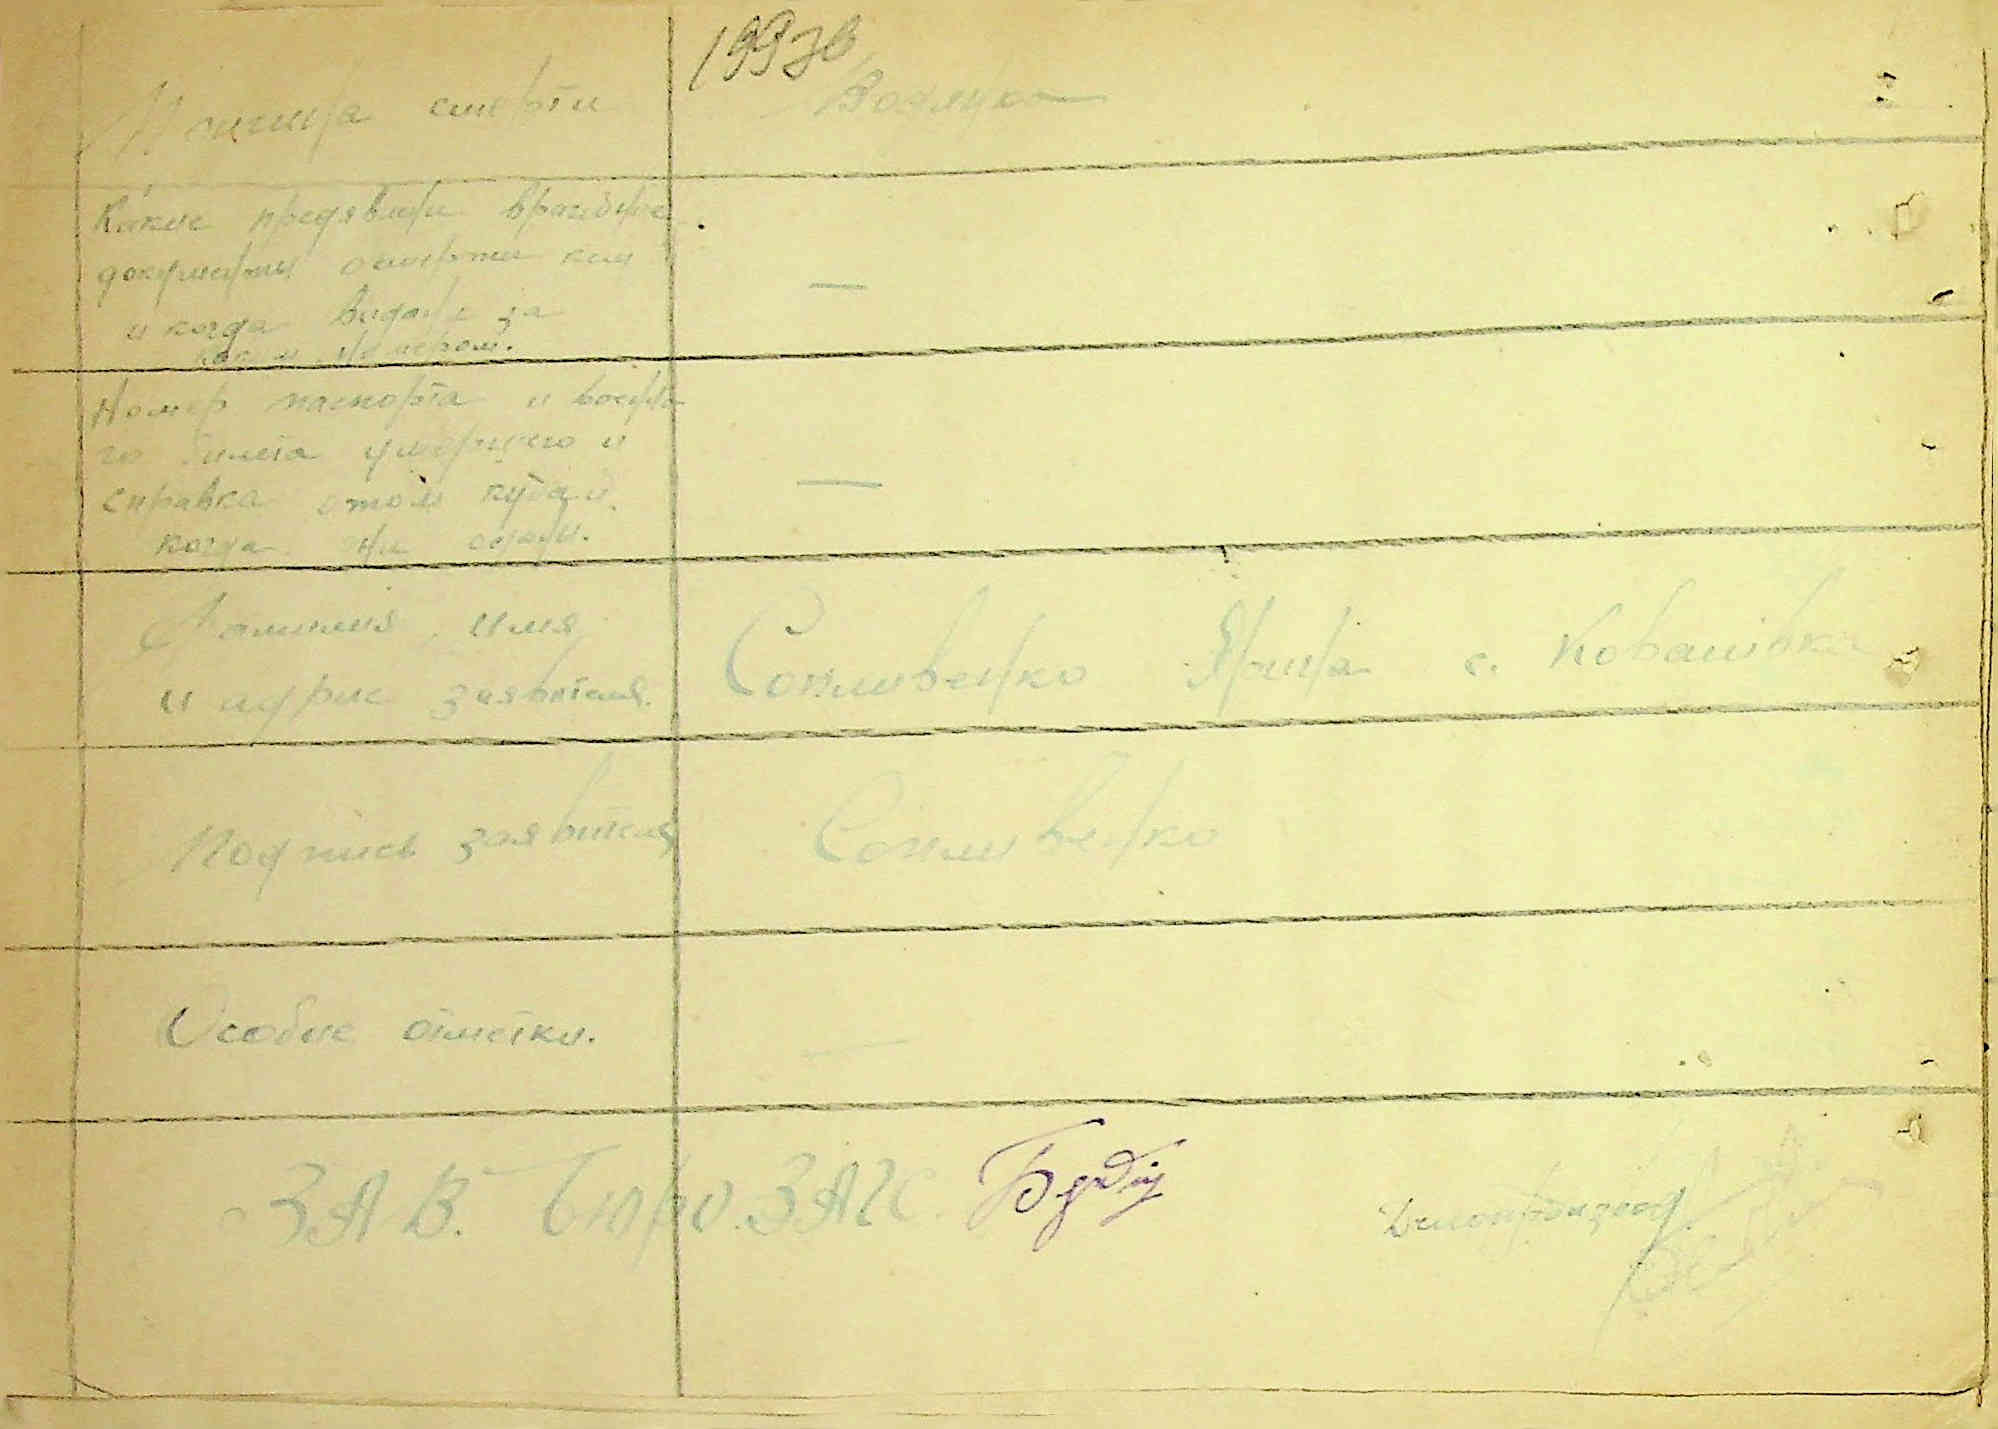 199зв
Причина смерти
Водянка
Какие предявлени врачебние
документы осмерти кем
и когда видани за
каким номером.
—
Номер паспорта и военно
го билета умершего и
справка отом куда и
когда они сдани.
—
Фамилия, имя
и адрис заявителя.
Сопливенко Ярина с. Ковашівка
Подпись заявителя
Сопливенко
Особие отметки.
—
ЗАВ. Бюро. ЗАГС.
Делопроизвод